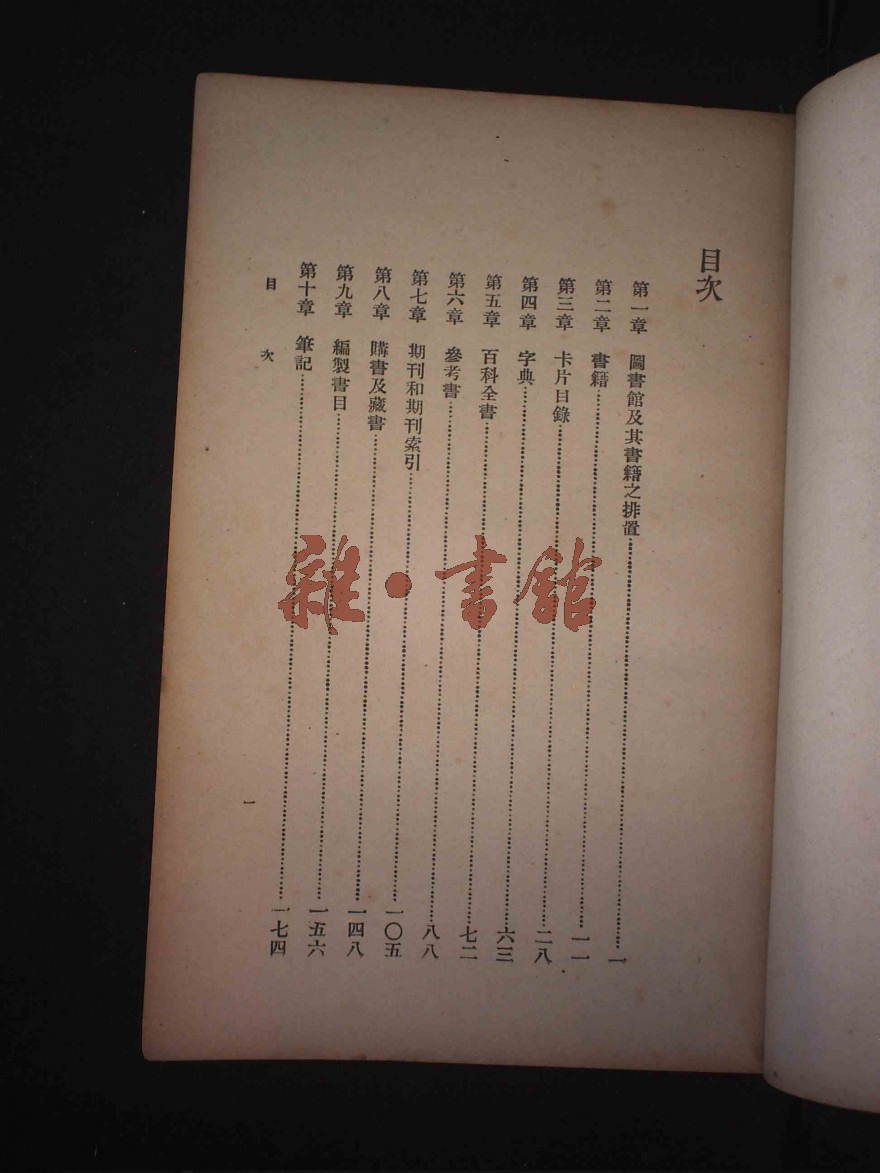 目次
第一章 圖書館及其書籍之排置…一
第二章 書籍…一一
第三章 卡片目錄…二八
第四章 字典…六三
第五章 百科全書…七二
第六章 參考書…八八
第七章 期刊和期刊索引…一〇五
第八章 購書及藏書…一四八
第九章 編製書目…一五六
第十章 筆記…一七四
目次
一
雜·書館